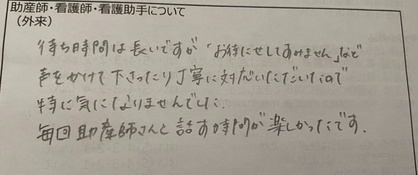 助産師・看護師・看護助手について
(外来)
待ち時間は長いですが「お待たせしてすみません」など
声をかけて下さったり丁寧に対応いただいたので
特に気になりませんでした.
毎回助産師さんと話す時間が楽しかったです.